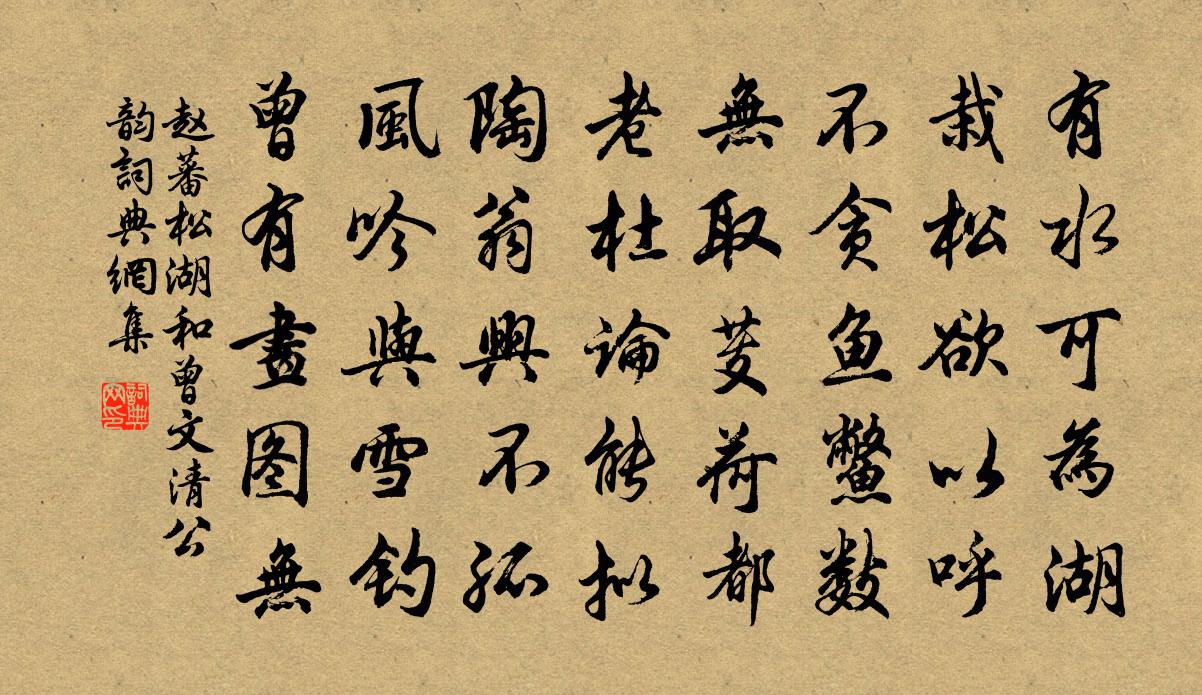 有水可為湖
栽松欲以呼
不贪鱼鱉数
無取芰荷都
老杜論能拟
陶翁興不孤
風吟與雪钓
曾有畫图無
赵蕃松湖和曾文清公
韵詞典網集
詞典网印